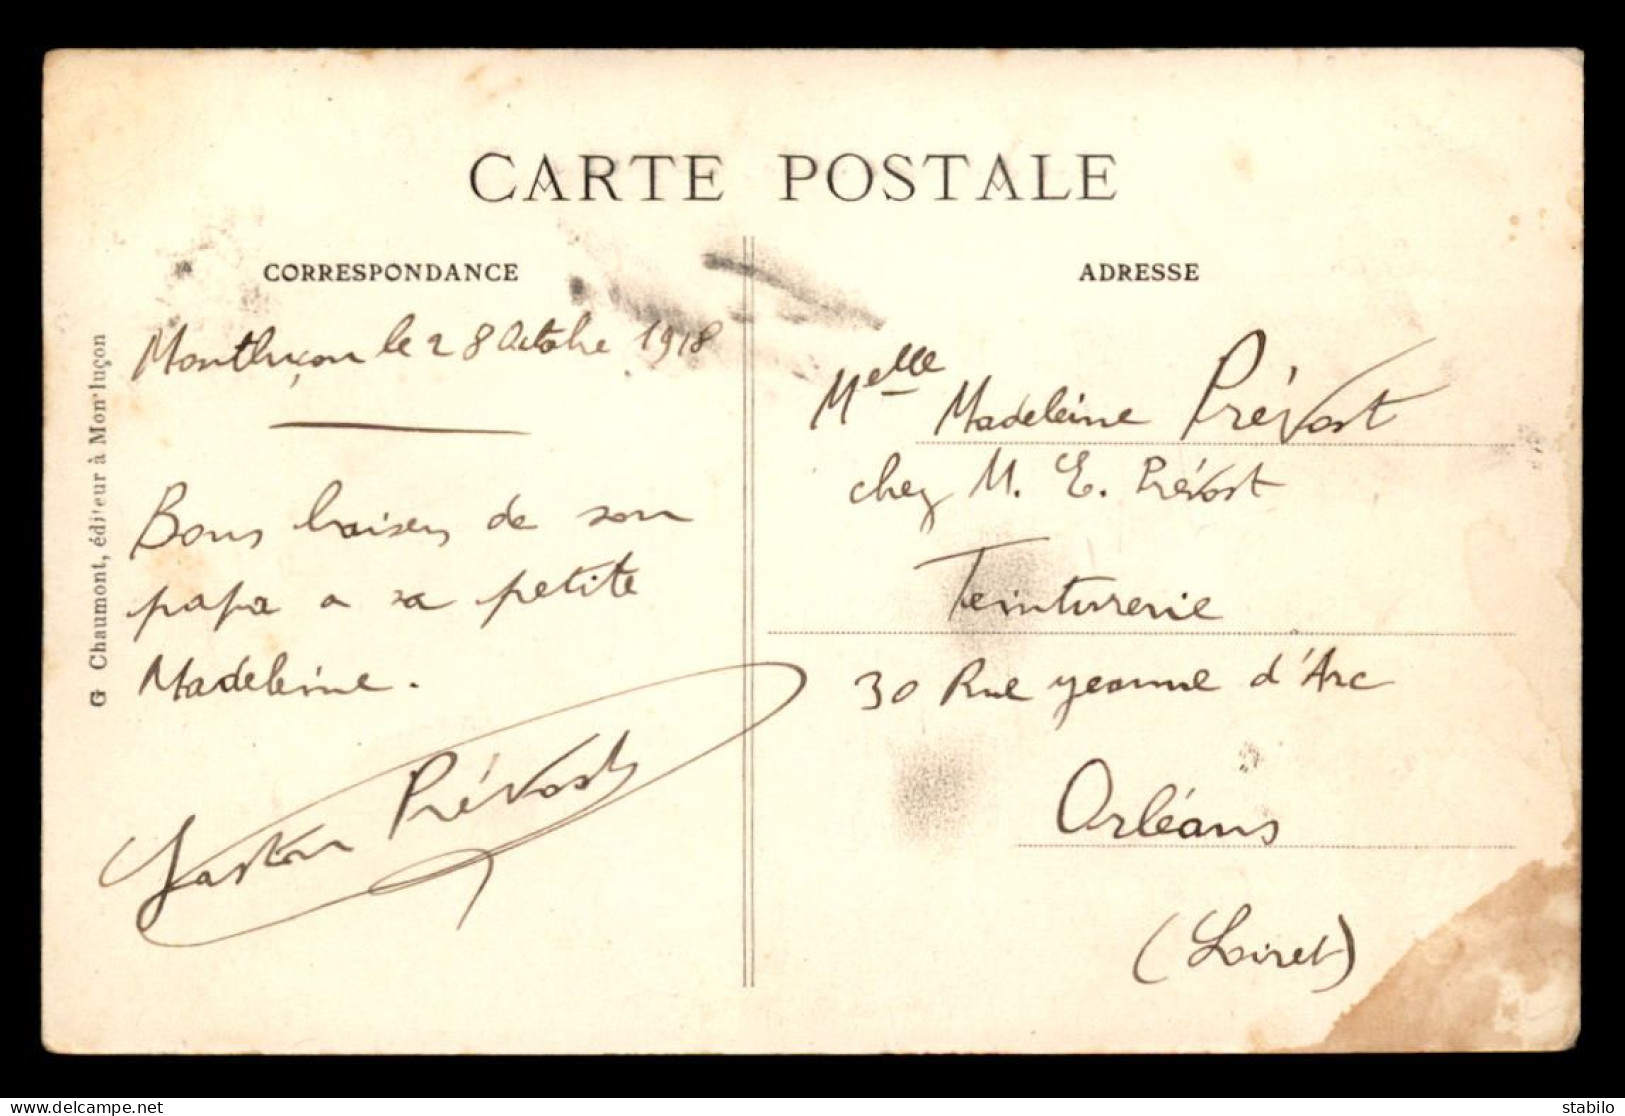 CARTE POSTALE
CORRESPONDANCE
Montluçon le 28 Octobre 1918
Bons baisers de son
papa a sa petite
Madeleine.
Gaston Prévost
G Chaumont, éditeur à Montluçon
ADRESSE
Melle Madeleine Prévost
chez M. E. Prévost
Teinturerie
30 Rue Jeanne d'Arc
Orléans
(Loiret)
delcampe.net stabilo